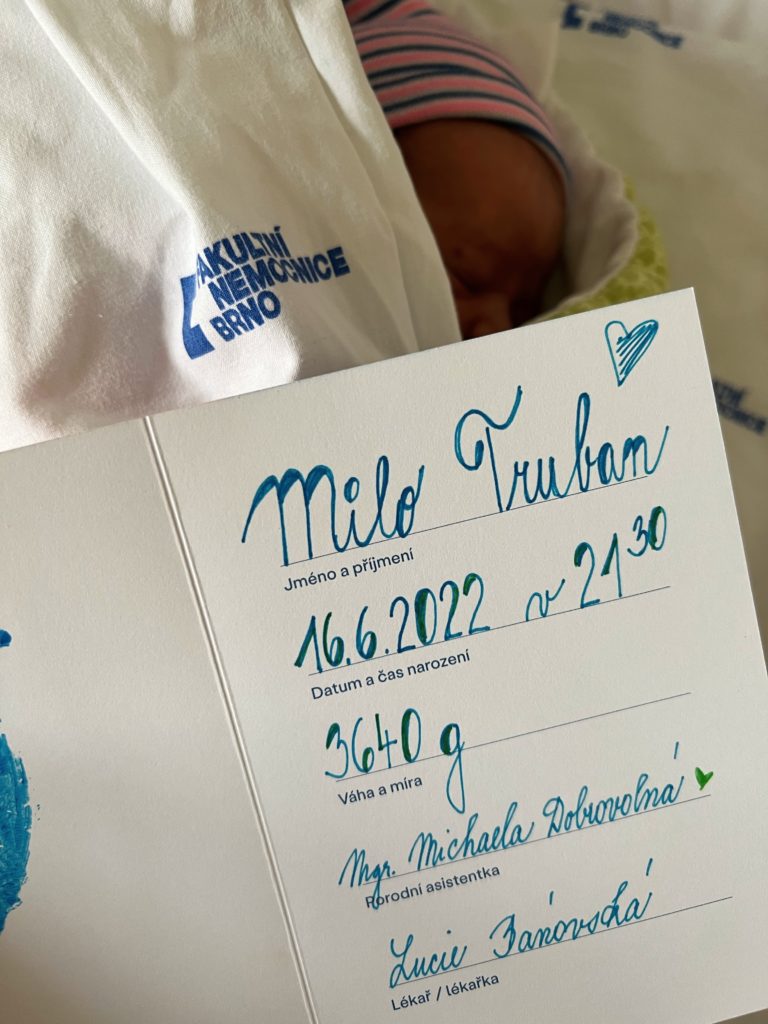 FAKULTNÍ
NEMOCNICE
BRNO
Milo Truban
Jméno a příjmení
16.6.2022 v 21³⁰
Datum a čas narození
3640 g
Váha a míra
Mgr. Michaela Dobrovolná
Porodní asistentka
Lucie Bánovská
Lékař / lékařka